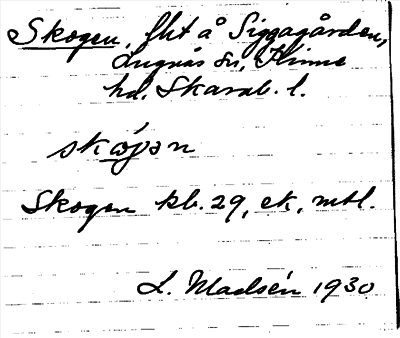 Skogen, flht å Siggagården,
Lugnås sn, Kinne
hd. Skarab. l.
skógan
Skogen kb. 29, ek, mtl.
L. Madsén 1930